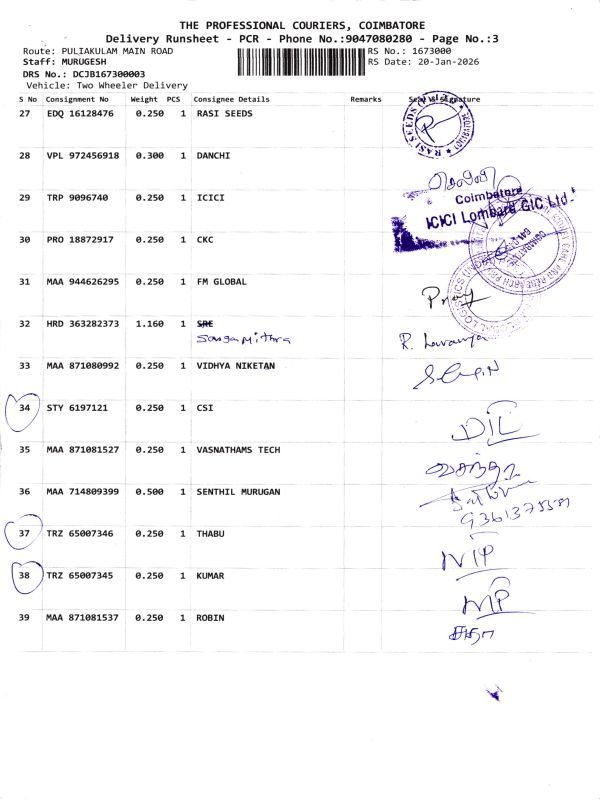 THE PROFESSIONAL COURIERS, COIMBATORE
Delivery Runsheet - PCR - Phone No.:9047080280 - Page No.:3
Route: PULIAKULAM MAIN ROAD RS No.: 1673000
Staff: MURUGESH RS Date: 20-Jan-2026
DRS No.: DCJB167300003
Vehicle: Two Wheeler Delivery
S No Consignment No Weight PCS Consignee Details Remarks Seal & Signature
27 EDQ 16128476 0.250 1 RASI SEEDS
RASI SEEDS
28 VPL 972456918 0.300 1 DANCHI
29 TRP 9096740 0.250 1 ICICI
Coimbatore
ICICI Lombard GIC Ltd.
30 PRO 18872917 0.250 1 CKC
31 MAA 944626295 0.250 1 FM GLOBAL
32 HRD 363282373 1.160 1 SRE
Sangamithra R. Lavanya
33 MAA 871080992 0.250 1 VIDHYA NIKETAN
34 STY 6197121 0.250 1 CSI
D/L
35 MAA 871081527 0.250 1 VASNATHAMS TECH
வசந்தா
36 MAA 714809399 0.500 1 SENTHIL MURUGAN
37 TRZ 65007346 0.250 1 THABU
N/P
38 TRZ 65007345 0.250 1 KUMAR
N/P
39 MAA 871081537 0.250 1 ROBIN